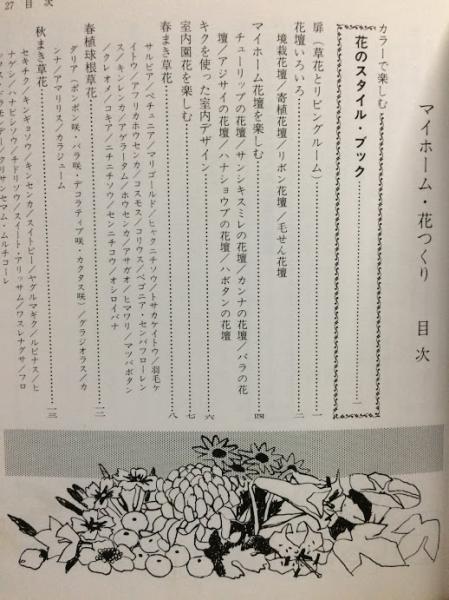 マイホーム・花つくり 目次
カラーで楽しむ
花のスタイル・ブック……一
扉(草花とリビングルーム)……一
花壇いろいろ……二
境栽花壇/寄植花壇/リボン花壇/毛せん花壇
マイホーム花壇を楽しむ……四
チューリップの花壇/サンシキスミレの花壇/カンナの花壇/バラの花
壇/アジサイの花壇/ハナショウブの花壇/ハボタンの花壇
キクを使った室内デザイン……六
室内園花を楽しむ……七
春まき草花……八
サルビア/ペチュニア/マリゴールド/ヒャクニチソウ/トサカケイトウ/羽毛ケ
イトウ/アフリカホウセンカ/コスモス/コリウス/ベゴニア・センパフローレン
ス/キンレンカ/アゲラータム/ホウセンカ/アサガオ/ヒマワリ/マツバボタン
/クレオメ/コキア/ニチニチソウ/センニチコウ/オシロイバナ
春植球根草花……一二
ダリア(ポンポン咲・バラ咲・デコラティブ咲・カクタス咲)/グラジオラス/カ
ンナ/アマリリス/カラジューム
秋まき草花……一三
セキチク/キンギョソウ/キンセンカ/スイートピー/ヤグルマギク/ルピナス/ヒ
ナゲシ/ハナビシソウ/チドリソウ/スイート・アリッサム/ワスレナグサ/フロ
クリサンセマム・ムルチコーレ
27 目次